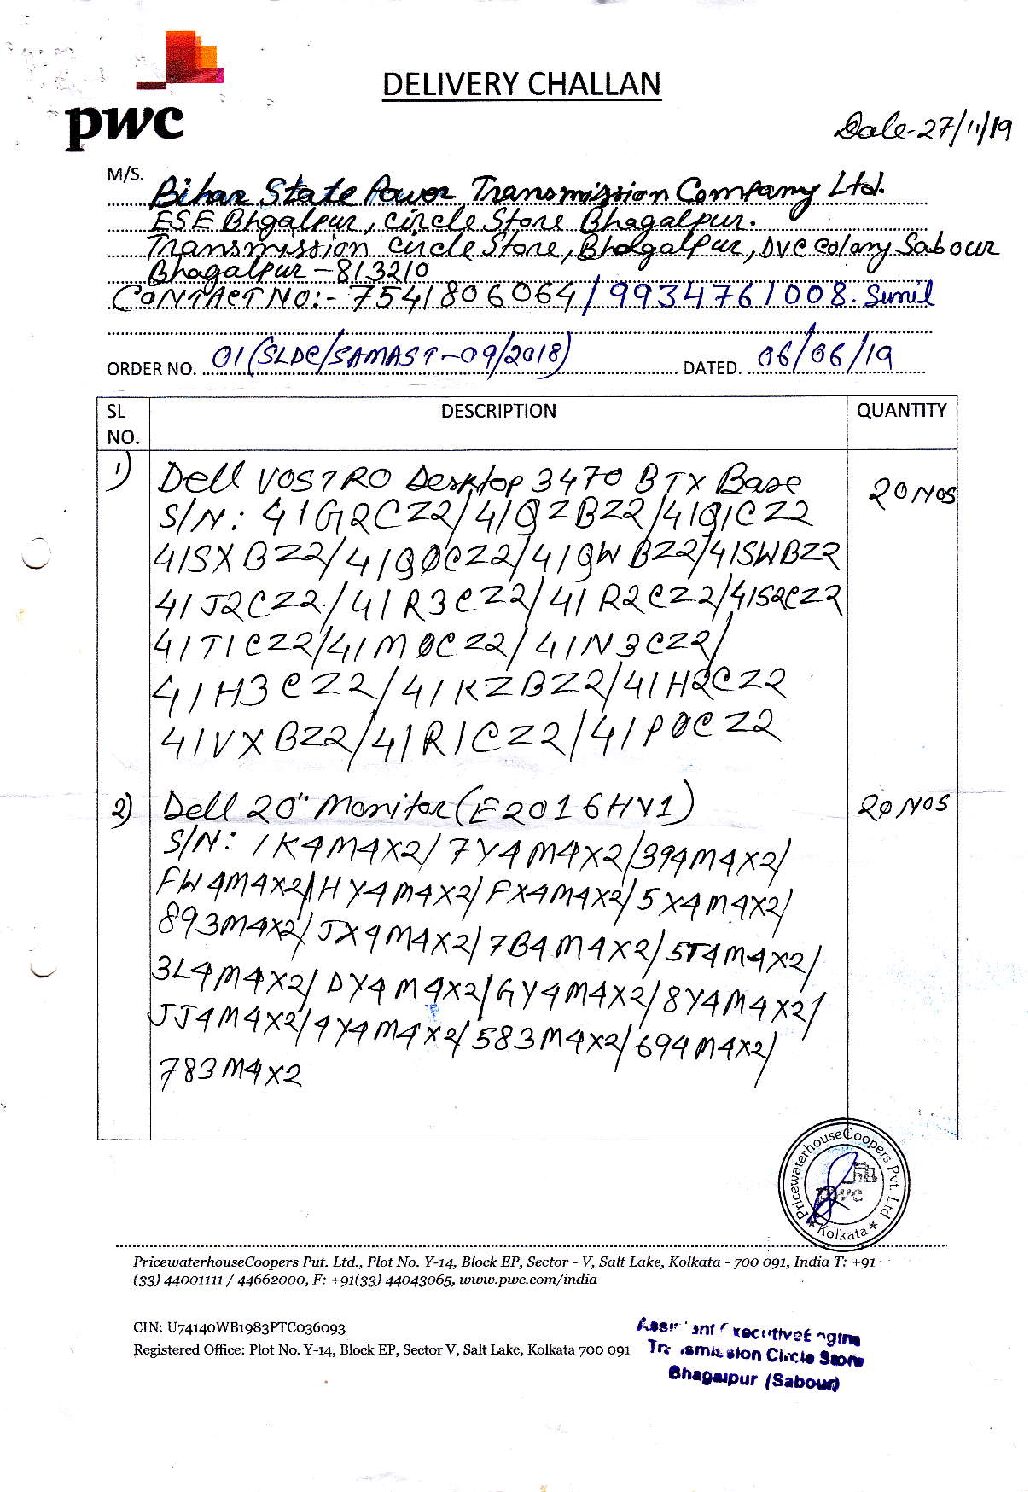 pwc
DELIVERY CHALLAN
Date-27/11/19
M/S. Bihar State Power Transmission Company Ltd.
ESE Bhgalpur, Circle Store Bhagalpur.
Transmission Circle Store, Bhalgalpur, DVC Colany Sabour
Bhagalpur - 813210
CONTACT NO:- 7541806064/9934761008. Sunil
ORDER NO. 01(SLDC/SAMAST-09/2018) DATED. 06/06/19
SL NO. DESCRIPTION QUANTITY
1) Dell VOSTRO Desktop 3470 BTX Base 20 NOS
S/N: 41G2CZ2/41QZBZ2/41Q1CZ2
41SXBZ2/41Q0CZ2/41QWBZ2/41SWBZ2
41J2CZ2/41R3CZ2/41R2CZ2/41S2CZ2
41T1CZ2/41M0CZ2/41N3CZ2/
41H3CZ2/41KZBZ2/41H2CZ2
41VXBZ2/41R1CZ2/41P0CZ2
2) Dell 20" Monitor(E2016HV1) 20 NOS
S/N: 1K4M4X2/7Y4M4X2/394M4X2/
FW4M4X2/HY4M4X2/FX4M4X2/5X4M4X2/
893M4X2/JX4M4X2/7B4M4X2/5T4M4X2/
3L4M4X2/DY4M4X2/GY4M4X2/8Y4M4X2/
JJ4M4X2/4Y4M4X2/583M4X2/694M4X2/
783M4X2
PricewaterhouseCoopers Pvt. Ltd
pwc
★ Kolkata ★
PricewaterhouseCoopers Pvt. Ltd., Plot No. Y-14, Block EP, Sector - V, Salt Lake, Kolkata - 700 091, India T: +91
(33) 44001111 / 44662000, F: +91(33) 44043065, www.pwc.com/india
CIN: U74140WB1983PTC036093
Registered Office: Plot No. Y-14, Block EP, Sector V, Salt Lake, Kolkata 700 091
Assistant Executive Engine
Transmission Circle Store
Bhagalpur (Sabour)